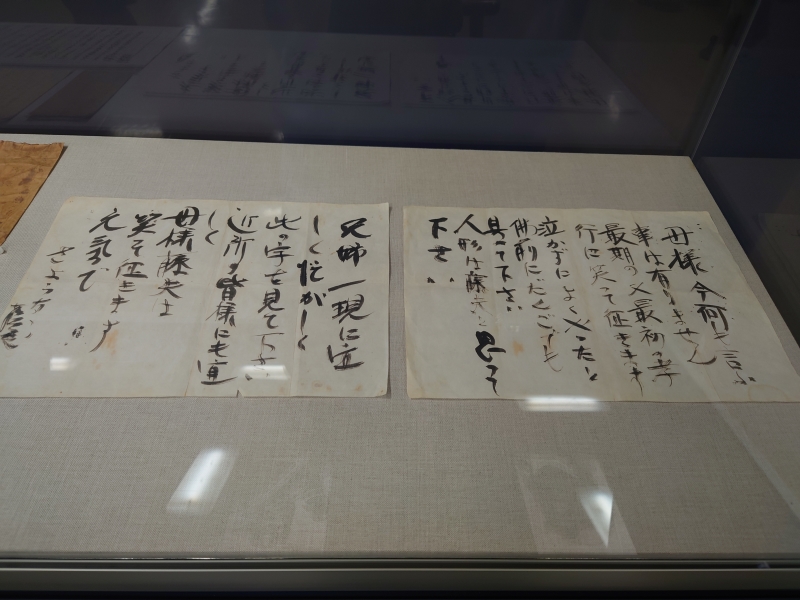 母様今何も言ふ
事は有りません
最期の又最初の孝
行に笑って征きます
泣かずによくやったと
佛前にだんごでも
具へて下さい
人形は藤夫と思って
下さい
兄姉
に宜
しく
此の字を見て下さい
近所の皆様にも宜
しく
母様藤夫は
笑って征きます
元気で
さようなら